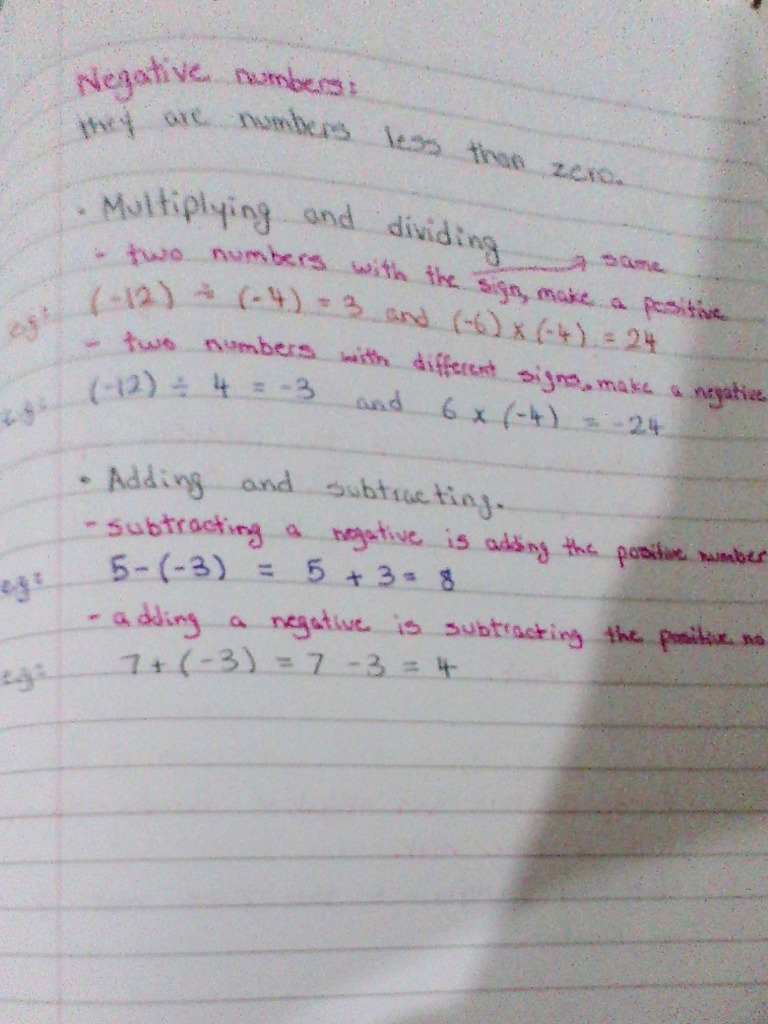 Negative numbers:
they are numbers less than zero.
• Multiplying and dividing
- two numbers with the sign, make a positive
same
eg: (-12) ÷ (-4) = 3 and (-6) x (-4) = 24
- two numbers with different signs, make a negative
eg: (-12) ÷ 4 = -3 and 6 x (-4) = -24
• Adding and subtracting.
- subtracting a negative is adding the positive number
eg: 5-(-3) = 5 + 3 = 8
- adding a negative is subtracting the positive no
eg: 7+(-3) = 7 -3 = 4